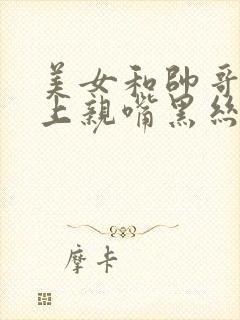 美女和帥哥
上親嘴黑絲
摩卡